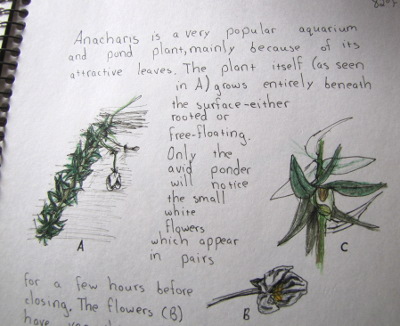 Anacharis is a very popular aquarium
and pond plant, mainly because of its
attractive leaves. The plant itself (as seen
in A) grows entirely beneath
the surface-either
rooted or
free-floating.
Only the
avid ponder
will notice
the small
white
flowers
which appear
in pairs
A
C
for a few hours before
closing. The flowers (B)
B
have